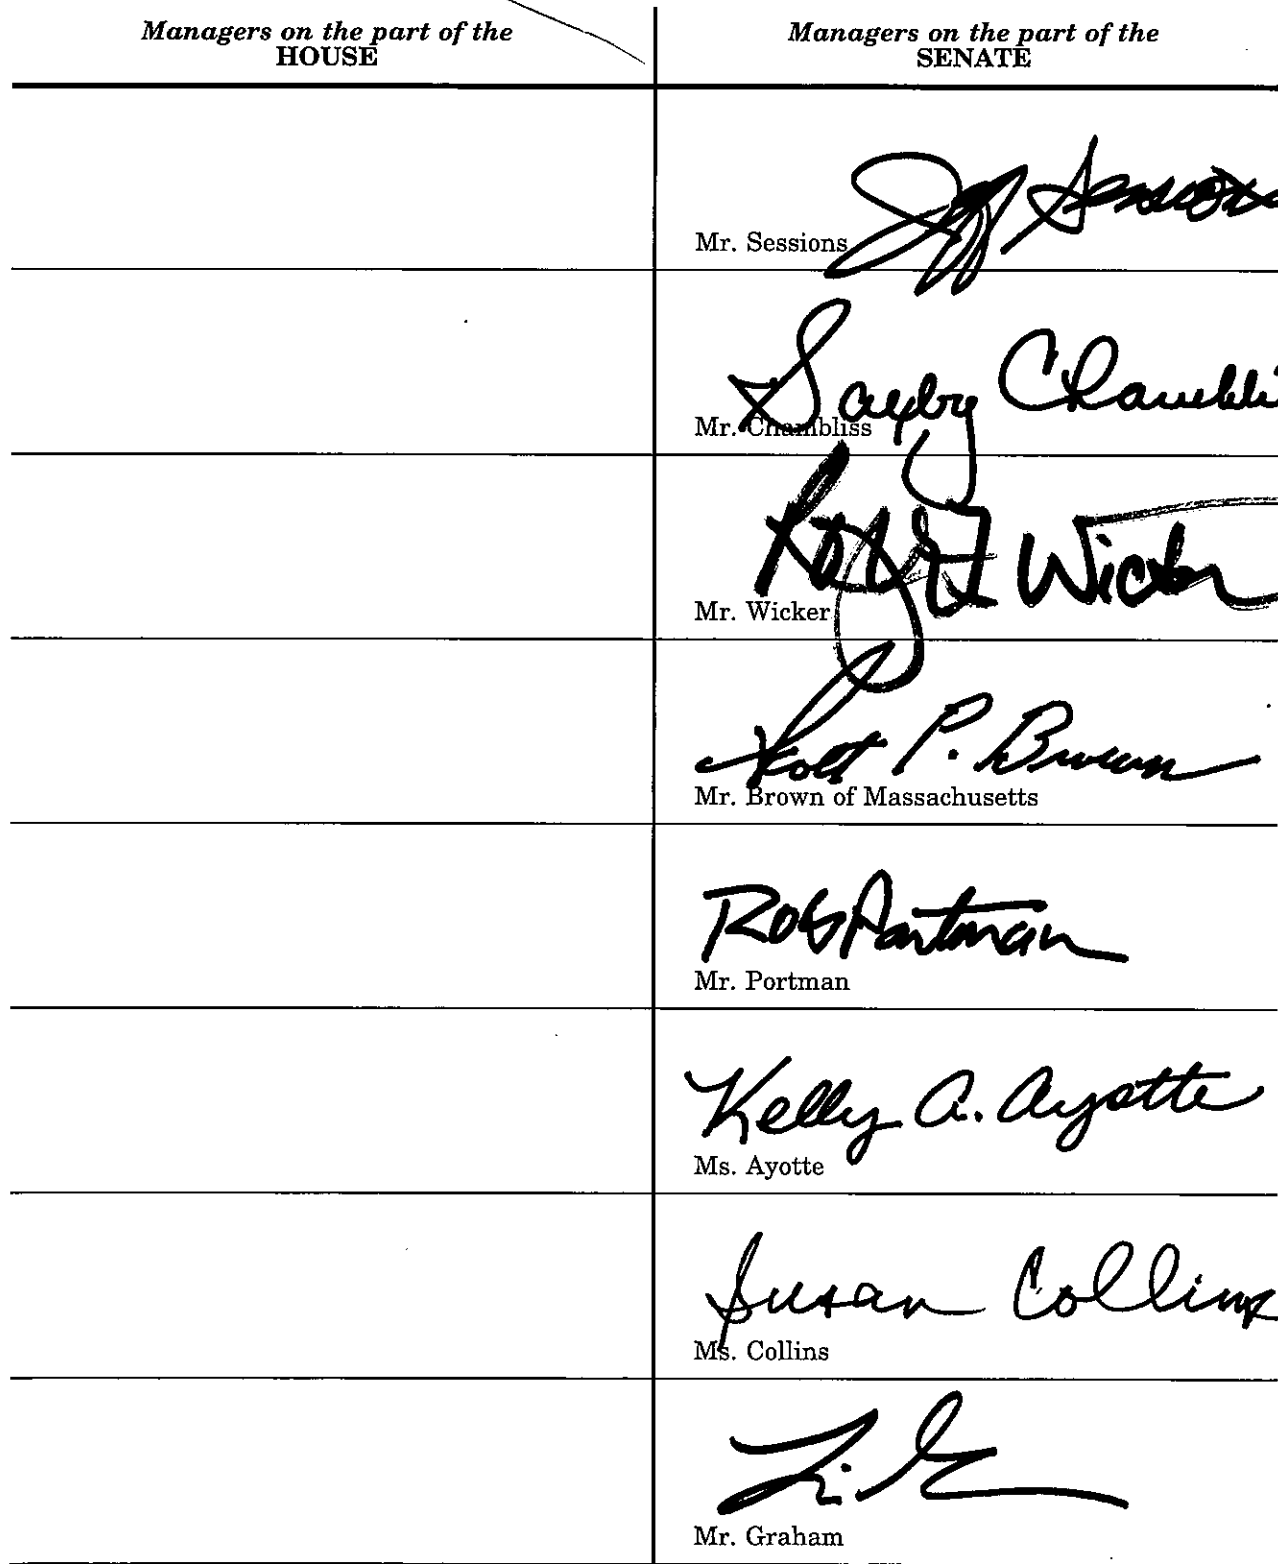 Managers on the part of the
HOUSE
Managers on the part of the
SENATE
Jeff Sessions
Mr. Sessions
Saxby Chambli
Mr. Chambliss
Roger F Wicker
Mr. Wicker
Scott P. Brown
Mr. Brown of Massachusetts
Rob Portman
Mr. Portman
Kelly A. Ayotte
Ms. Ayotte
Susan Collins
Ms. Collins
Mr. Graham